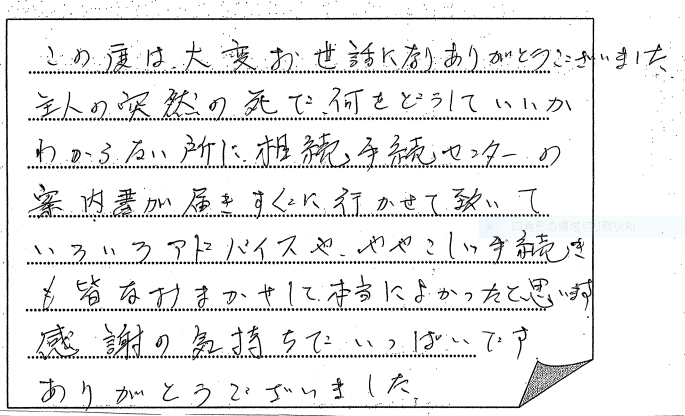 この度は大変お世話になりありがとうございました
主人の突然の死で何をどうしていいか
わからない所に相続手続センターの
案内書が届きすぐに行かせて致いて
いろいろアドバイスや、ややこしい手続き
も皆なおまかせして本当によかったと思います
感謝の気持ちでいっぱいです
ありがとうございました。